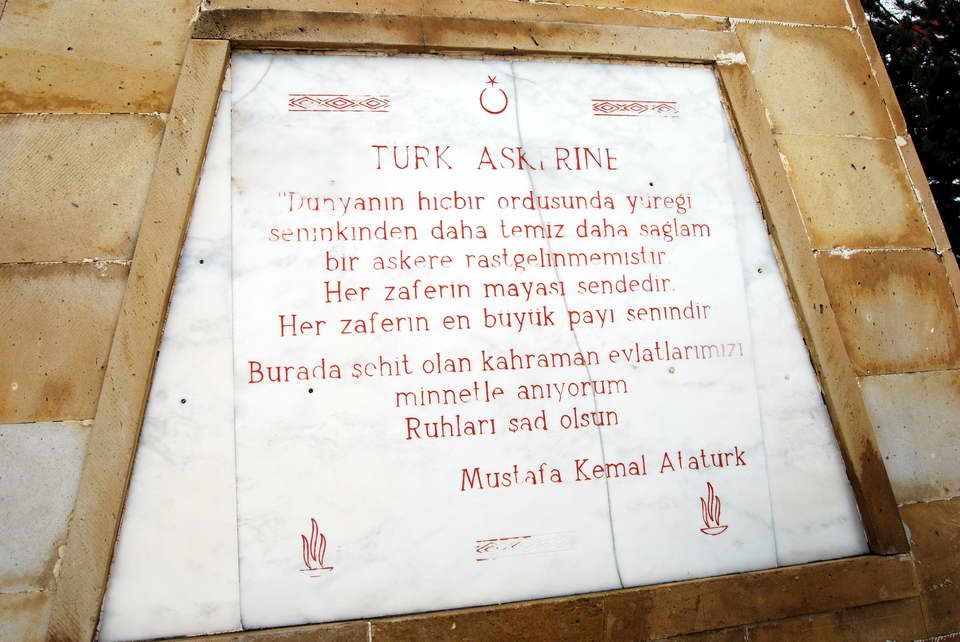 TÜRK ASKERINE
"Dünyanın hiçbir ordusunda yüreği
seninkinden daha temiz daha sağlam
bir askere rastgelinmemiştir.
Her zaferin mayası sendedir.
Her zaferin en büyük payı senindir
Burada şehit olan kahraman evlatlarımızı
minnetle anıyorum
Ruhları şad olsun
Mustafa Kemal Atatürk